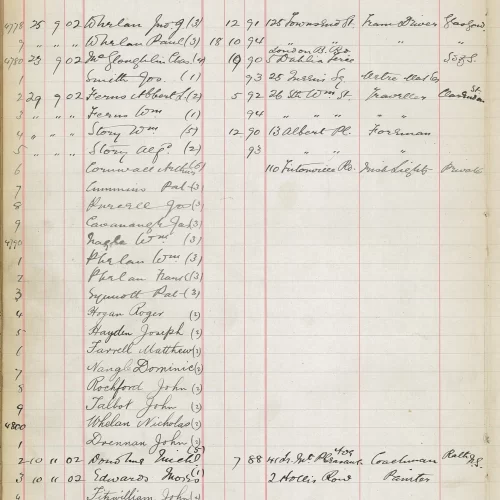 4778 25 9 02 Whelan Jno J (3) 12 91 125 Townsend St. Tram Driver Glasgow
9 " " " Whelan Paul (3) 18 10 94 " " "
4780 23 9 02 McLoughlin Chas (4) 19 90 5 Dahlia Terrce
1 Smith Jos. (1) 93 25 Sq.
2 29 9 02 Ferns Albert J. (2) 5 92 26 Sth Wm St. Traveller Clarendon St
3 " " " Ferns Wm (1) 94 " " " " "
4 " " " Story Wm (5) 12 90 13 Albert Pl. Foreman
5 " " " Story Alfd (2) 93 " " "
6 Cornwall Arthur (6) 110 Tritonville Rd. Irish Lights Private
7 Cummins Pat (3)
8 Purcell Jos (3)
9 Cavanagh Jas (3)
4790 Nagle Wm. (3)
1 Phelan Wm (3)
2 Phelan Franc (3)
3 Synnott Pat (3)
4 Hogan Roger (3)
5 Hayden Joseph (3)
6 Farrell Matthew (3)
7 Nangle Dominic (3)
8 Rochford John (3)
9 Talbot John (3)
4800 Whelan Nicholas (3)
1 Drennan John (3)
2 10 11 02 Donohue Michl (5) 7 88 Mt Pleasant Coachman Rath N.S.
3 10 11 02 Edwards Morris (1) 2 Hollis Row Painter
4 Fitzwilliam John